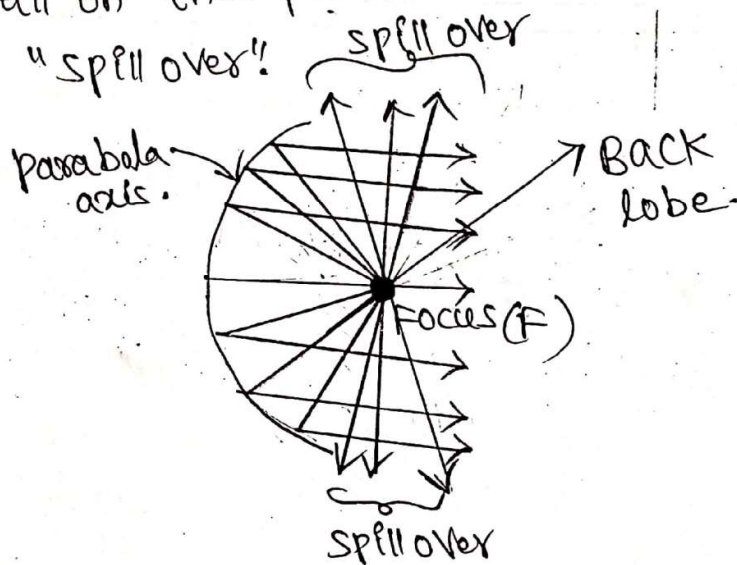 "spill over".
spill over
parabola
axis.
BACK
lobe.
Focus (F)
spill over